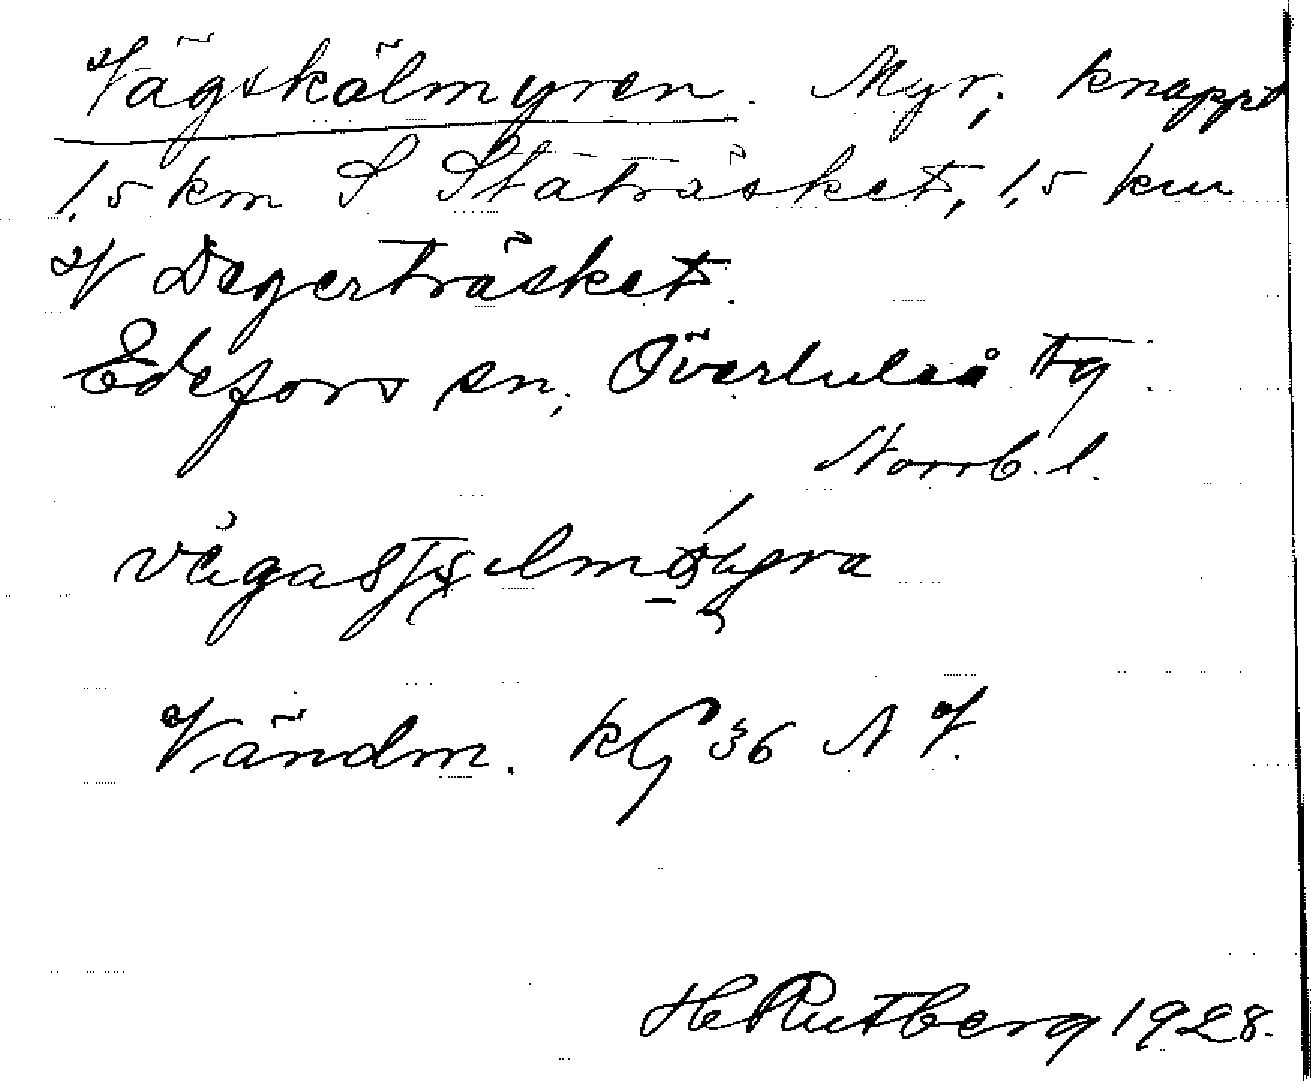 Vägskälmyren. Myr; knappt
1,5 km S Stäträsket, 1,5 km
V Degerträsket.
Edefors sn, Överluleå tg
Norrb. l.
Vändm. kG 36 NV.
H Rutberg 1928.